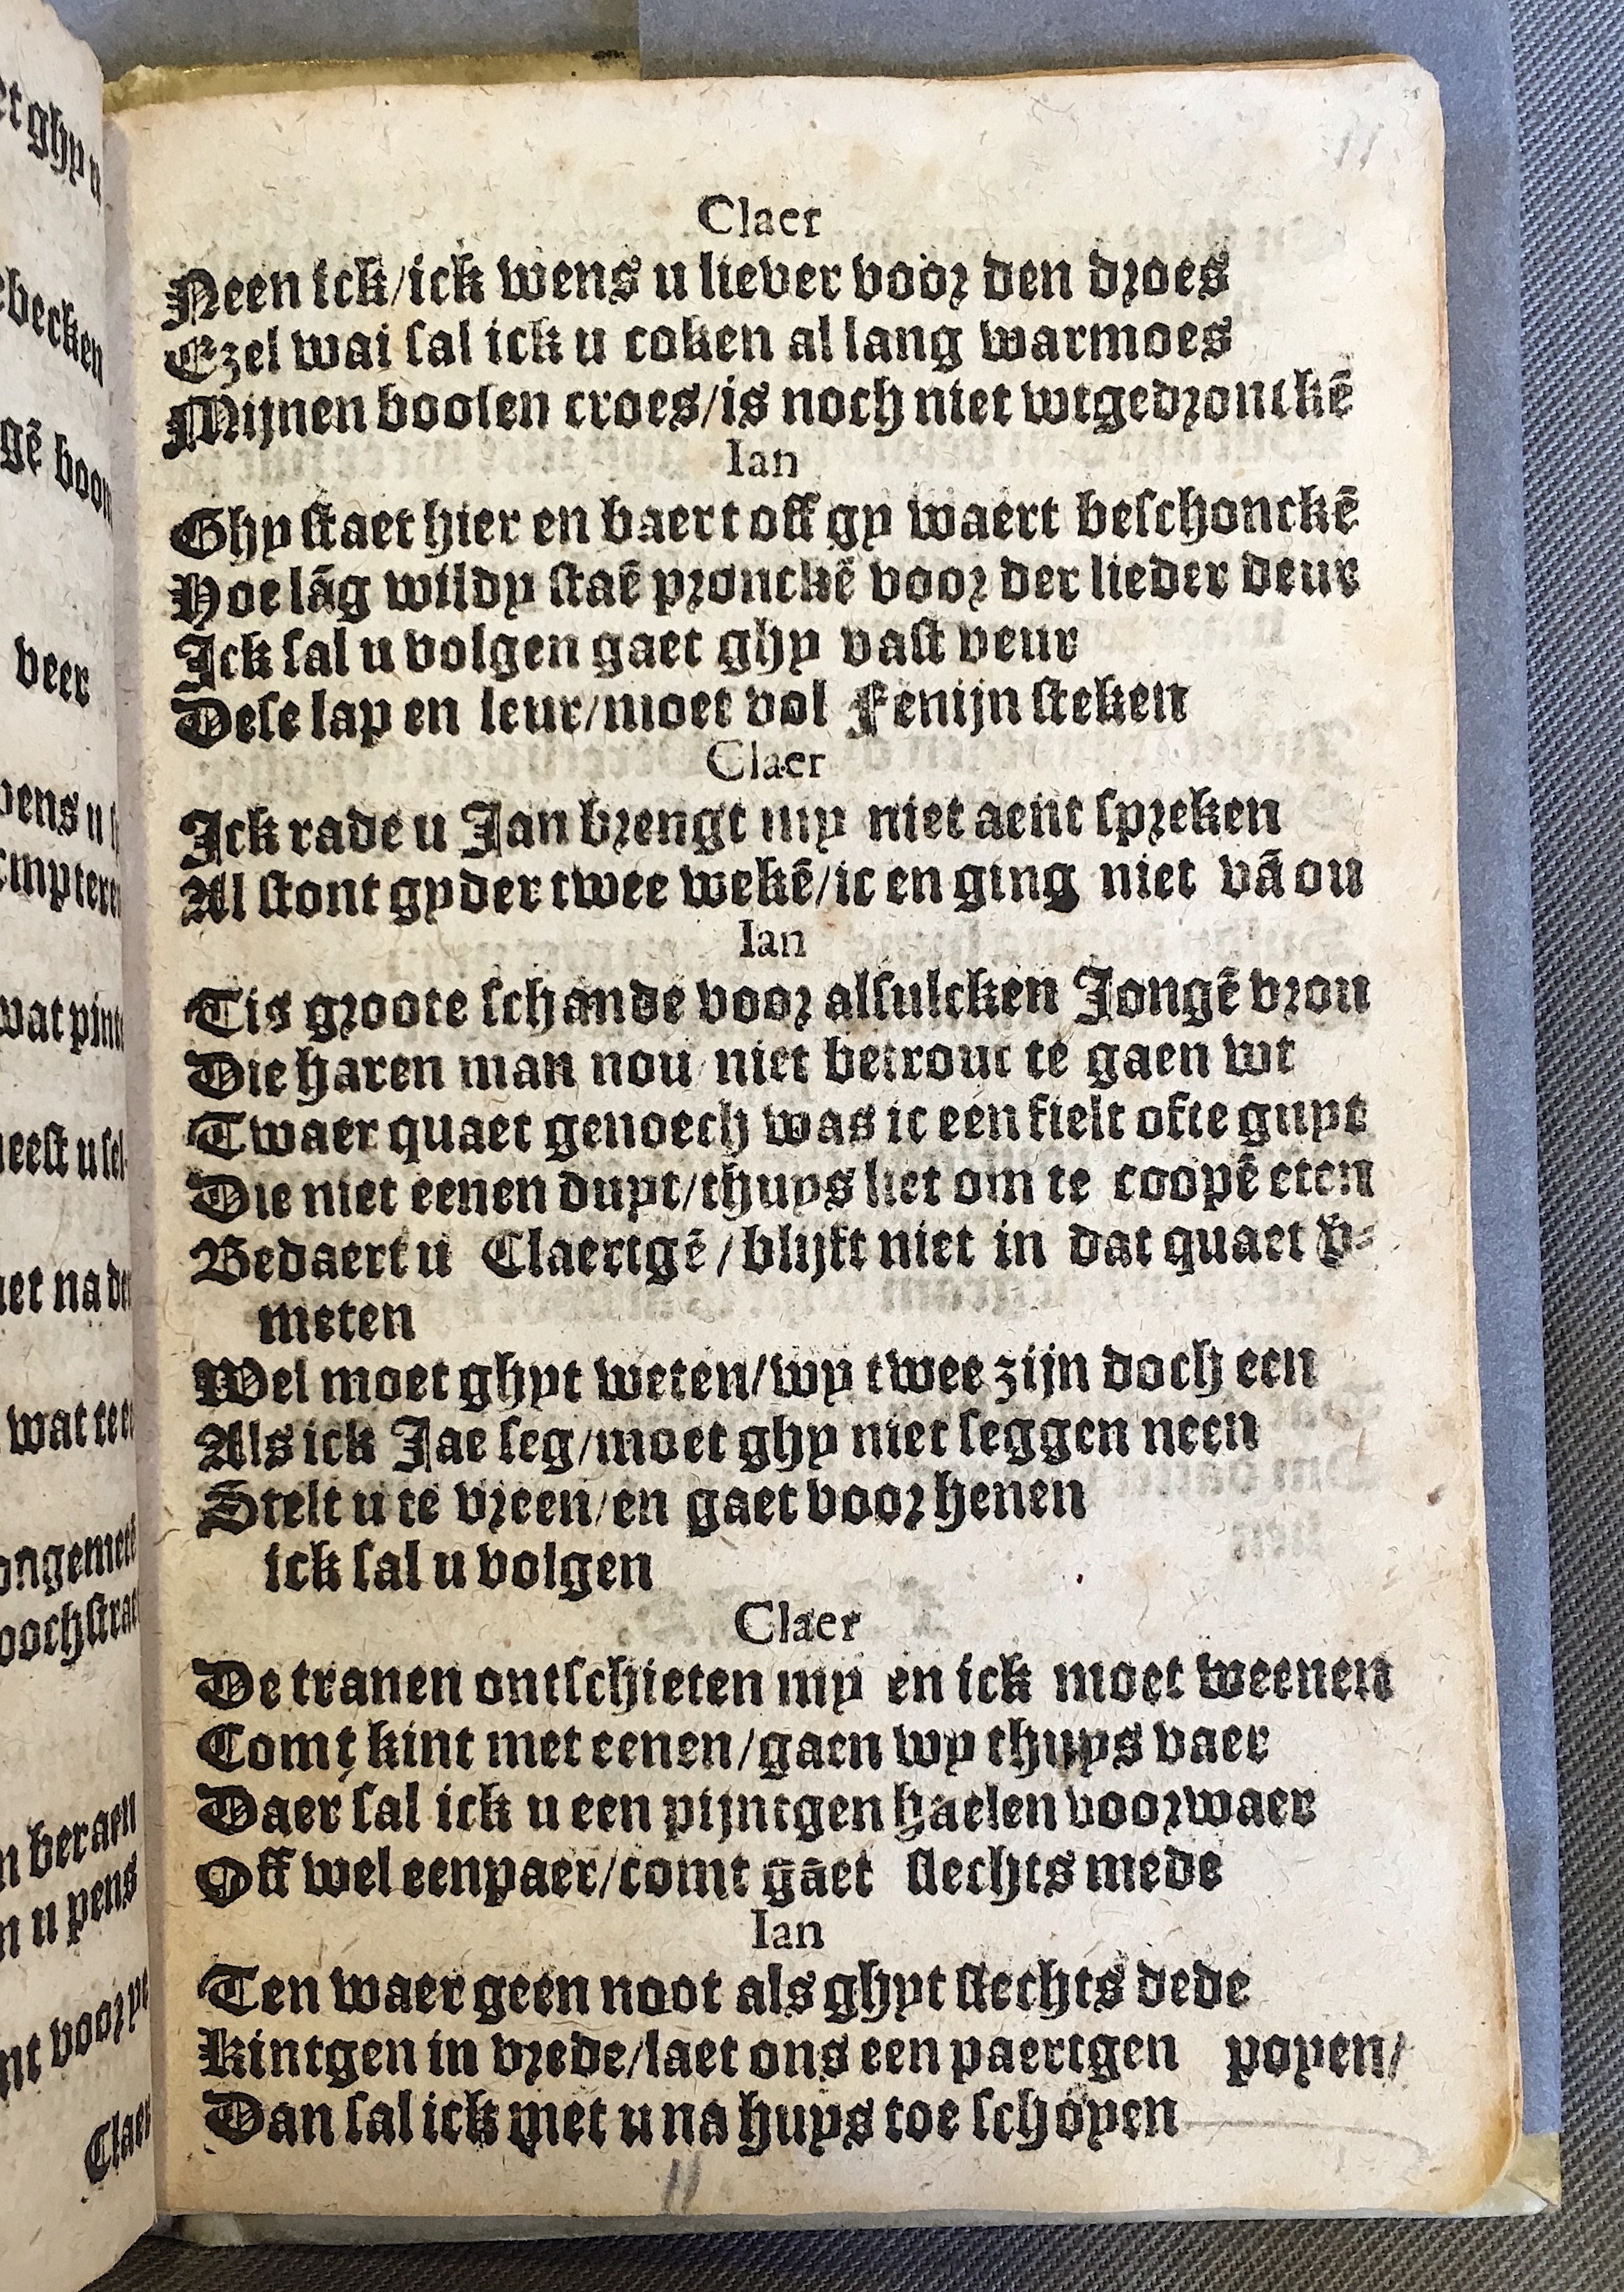 11
Claer
Neen ick/ick wens u liever voor den droes
Ezel wat sal ick u coken al lang warmoes
Mijnen boosen croes/is noch niet wtgedronckē
Ian
Ghy staet hier en baert off gy waert beschonckē
Hoe lāg wildy staē pronckē voor der lieder deur
Ick sal u volgen gaet ghy vast veur
Dese lap en leur/moet vol Fenijn steken
Claer
Ick rade u Jan brengt my niet aent spreken
Al stont gy der twee wekē/ic en ging niet vā ou
Ian
Tis groote schande voor alsulcken Jongē vrou
Die haren man nou niet betrout te gaen wt
Twaer quaet genoech was ic een fielt ofte guyt
Die niet eenen duyt/thuys liet om te coopē eten
Bedaert u Claertgē/blijft niet in dat quaet v-
meten
Wel moet ghyt weten/wy twee zijn doch een
Als ick Jae seg/moet ghy niet seggen neen
Stelt u te vreen/en gaet voor henen
ick sal u volgen
Claer
De tranen ontschieten my en ick moet weenen
Comt kint met eenen/gaen wy thuys vaer
Daer sal ick u een pijntgen haelen voorwaer
Off wel een paer/comt gaet slechts mede
Ian
Ten waer geen noot als ghyt slechts dede
Kintgen in vrede/laet ons een paertgen poyen/
Dan sal ick met u na huys toe schoyen
11
et ghy u
becken
gē boon
veer
wat pint
eest u sel
et na der
wat te
ongemete
oochstrat
beraen
u pens
voor
Claer